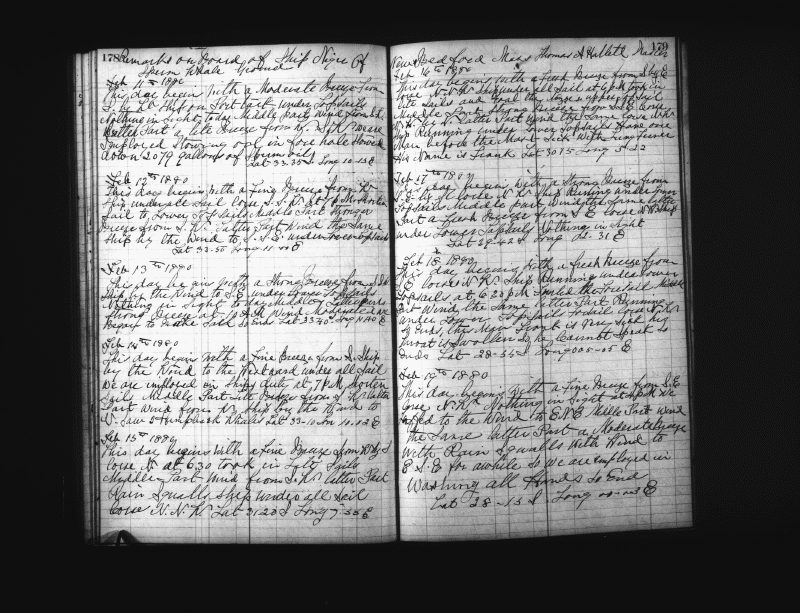 178 Remarks on Board of Ship Niger Of
Sperm Whale Ground
Feb 11th 1880
This day begins with a Moderate Breeze from
Ship on Port tack under Topsails
Nothing in Sight today Middle Part Wind from
latter Part a lite Breeze from we are
Employed Stowing oil in fore hole Stowed
down 2079 gallons of Sperm oil
Lat 33-35 S Long 10-15 E
Feb 12th 1880
This day begins with a Fine Breeze from
Ship under all Sail
Sail to Lower Topsails Middle Part Stronger
Breeze from S.W. Latter Part Wind the Same
Ship by the Wind to S.S.E. under
Lat 33-50 Long 11-00 E
Feb 13th 1880
This day begins with a Strong Breeze from
Ship by the Wind to S.E. under Lower Topsails
Nothing in Sight to day Middle Part
Strong Breeze at 10 A.M. Wind Moderated
Began to Make Sail So Ends Lat 33-40 Long E
Feb 14th 1880
This day begins with a Fine Breeze from S. Ship
by the Wind to the Westward under all Sail
We are employed in Ships duty at 7 P.M. Shorten
Sails Middle Part Lite Breeze from S. latter
Part Wind from Ship by the Wind to
W. Saw 2 Humpback Whales Lat 33-10 Lon 10-12 E
Feb 15th 1880
This day begins with a Fine Breeze from W by S
Corse N at 6.30 took in Lite Sails
Middle Part Wind from S.W. latter Part
Rain Squalls Ship under all Sail
Corse N.N.W. Lat 31-20 S Long 7-55 E
New Bedford Mass Thomas A Hallett Master 179
Feb 16th 1880
This day begins with a fresh Breeze from
Corse N.N.W. Ship under all Sail at 6 P.M. took in
Lite Sails and
Middle Part Strong Breeze from S.E. Corse
latter Part Wind the Same Corse N.W.
Ship Running under Lower Topsails Have one
Man before the Mast Sick With Lung Fever
His Name is Frank Lat 30 15 Long 3-22
Feb 17th 1880
This day begins with a Strong Breeze from
Corse N.W. Ship Running under
Topsails Middle part Wind the Same latter
Part a fresh Breeze from S.E. Corse N.W. Ship
under Lower Topsails Nothing in Sight
Lat 29-42 S Long 31 E
Feb 18 1880
This day begins with a fresh Breeze from
S.E. Corse N.W. Ship Running under Lower
Topsails at 6 20 P.M. Furled the Foresail Middle
Part Wind the Same latter Part Running
under Lower Topsails Foresail Corse N.W.
So Ends, the Man Frank is very sick his
throat is Swollen So he Cannot Speak So
Ends Lat 28-34 S Long 00-05 E
Feb 19th 1880
This day begins with a Fine Breeze from S.E.
Corse N.W. Nothing in Sight at 6 P.M. we
to the Wind to E.N.E. Middle Part Wind
the Same latter Part a Moderate
with Rain Squalls With Head to
E.S.E. for awhile So we are employed in
Washing all Hands So End
Lat 28-13 S. Long 00-03 E